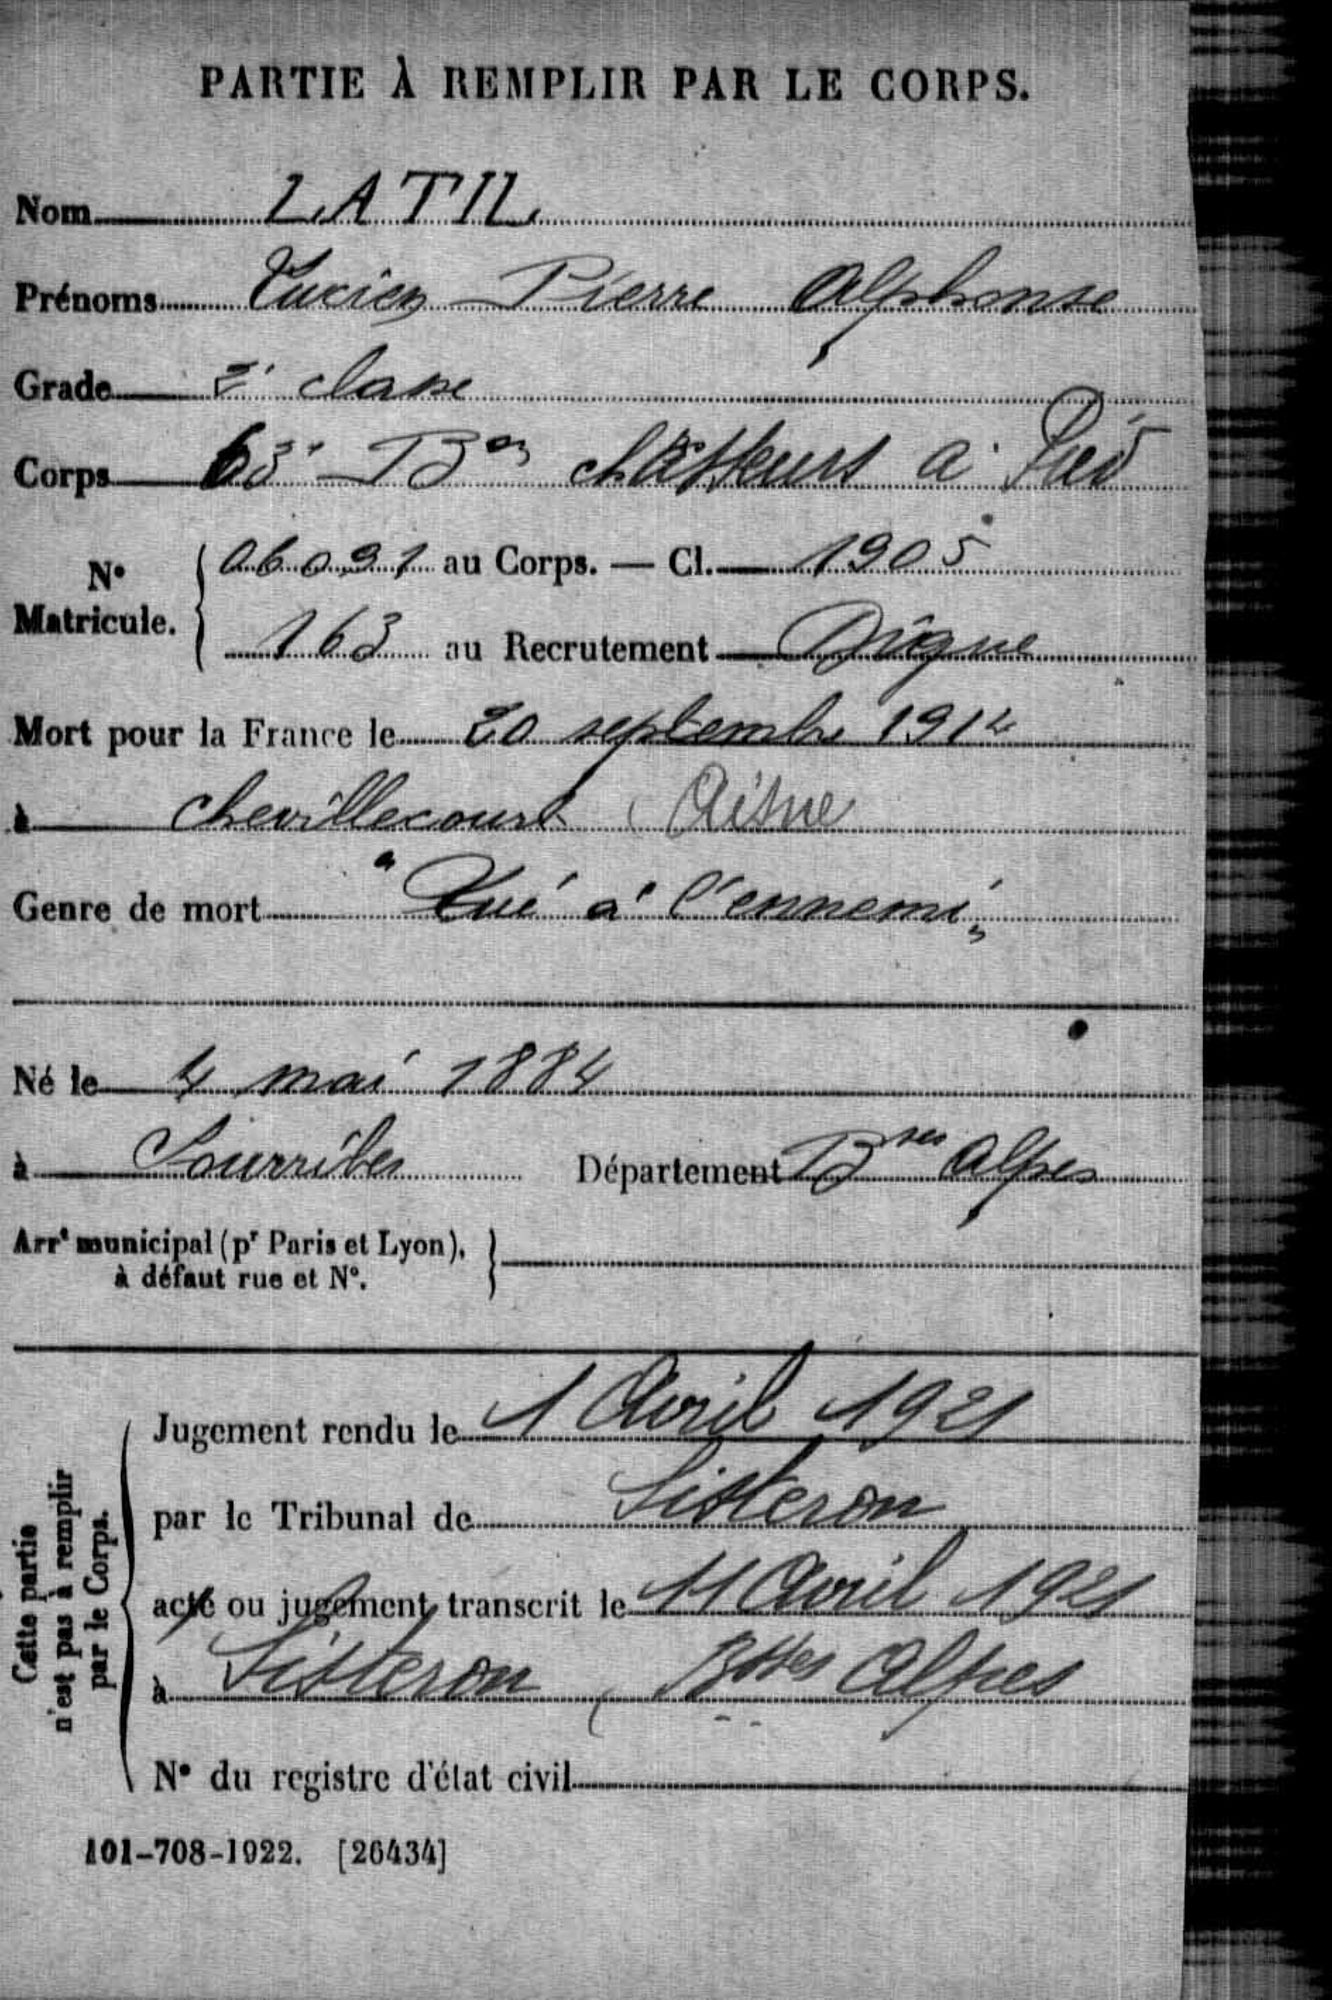 PARTIE À REMPLIR PAR LE CORPS.
Nom LATIL
Prénoms Lucien Pierre Alphonse
Grade 2e classe
Corps 63e Bon chasseurs à Pied
No Matricule. { 06091 au Corps. — Cl. 1905
163 au Recrutement Digne
Mort pour la France le 20 septembre 1914
à chevillecourt (Aisne
Genre de mort "Tué à l'ennemi"
Né le 4 mai 1884
à Sourribes Département Bses Alpes
Arrt municipal (pr Paris et Lyon), }
à défaut rue et No.
Cette partie n'est pas à remplir par le Corps.
Jugement rendu le 1 Avril 1921
par le Tribunal de Sisteron
acte ou jugement transcrit le 11 Avril 1921
à Sisteron (Bsses Alpes
No du registre d'état civil
101-708-1922. [26434]